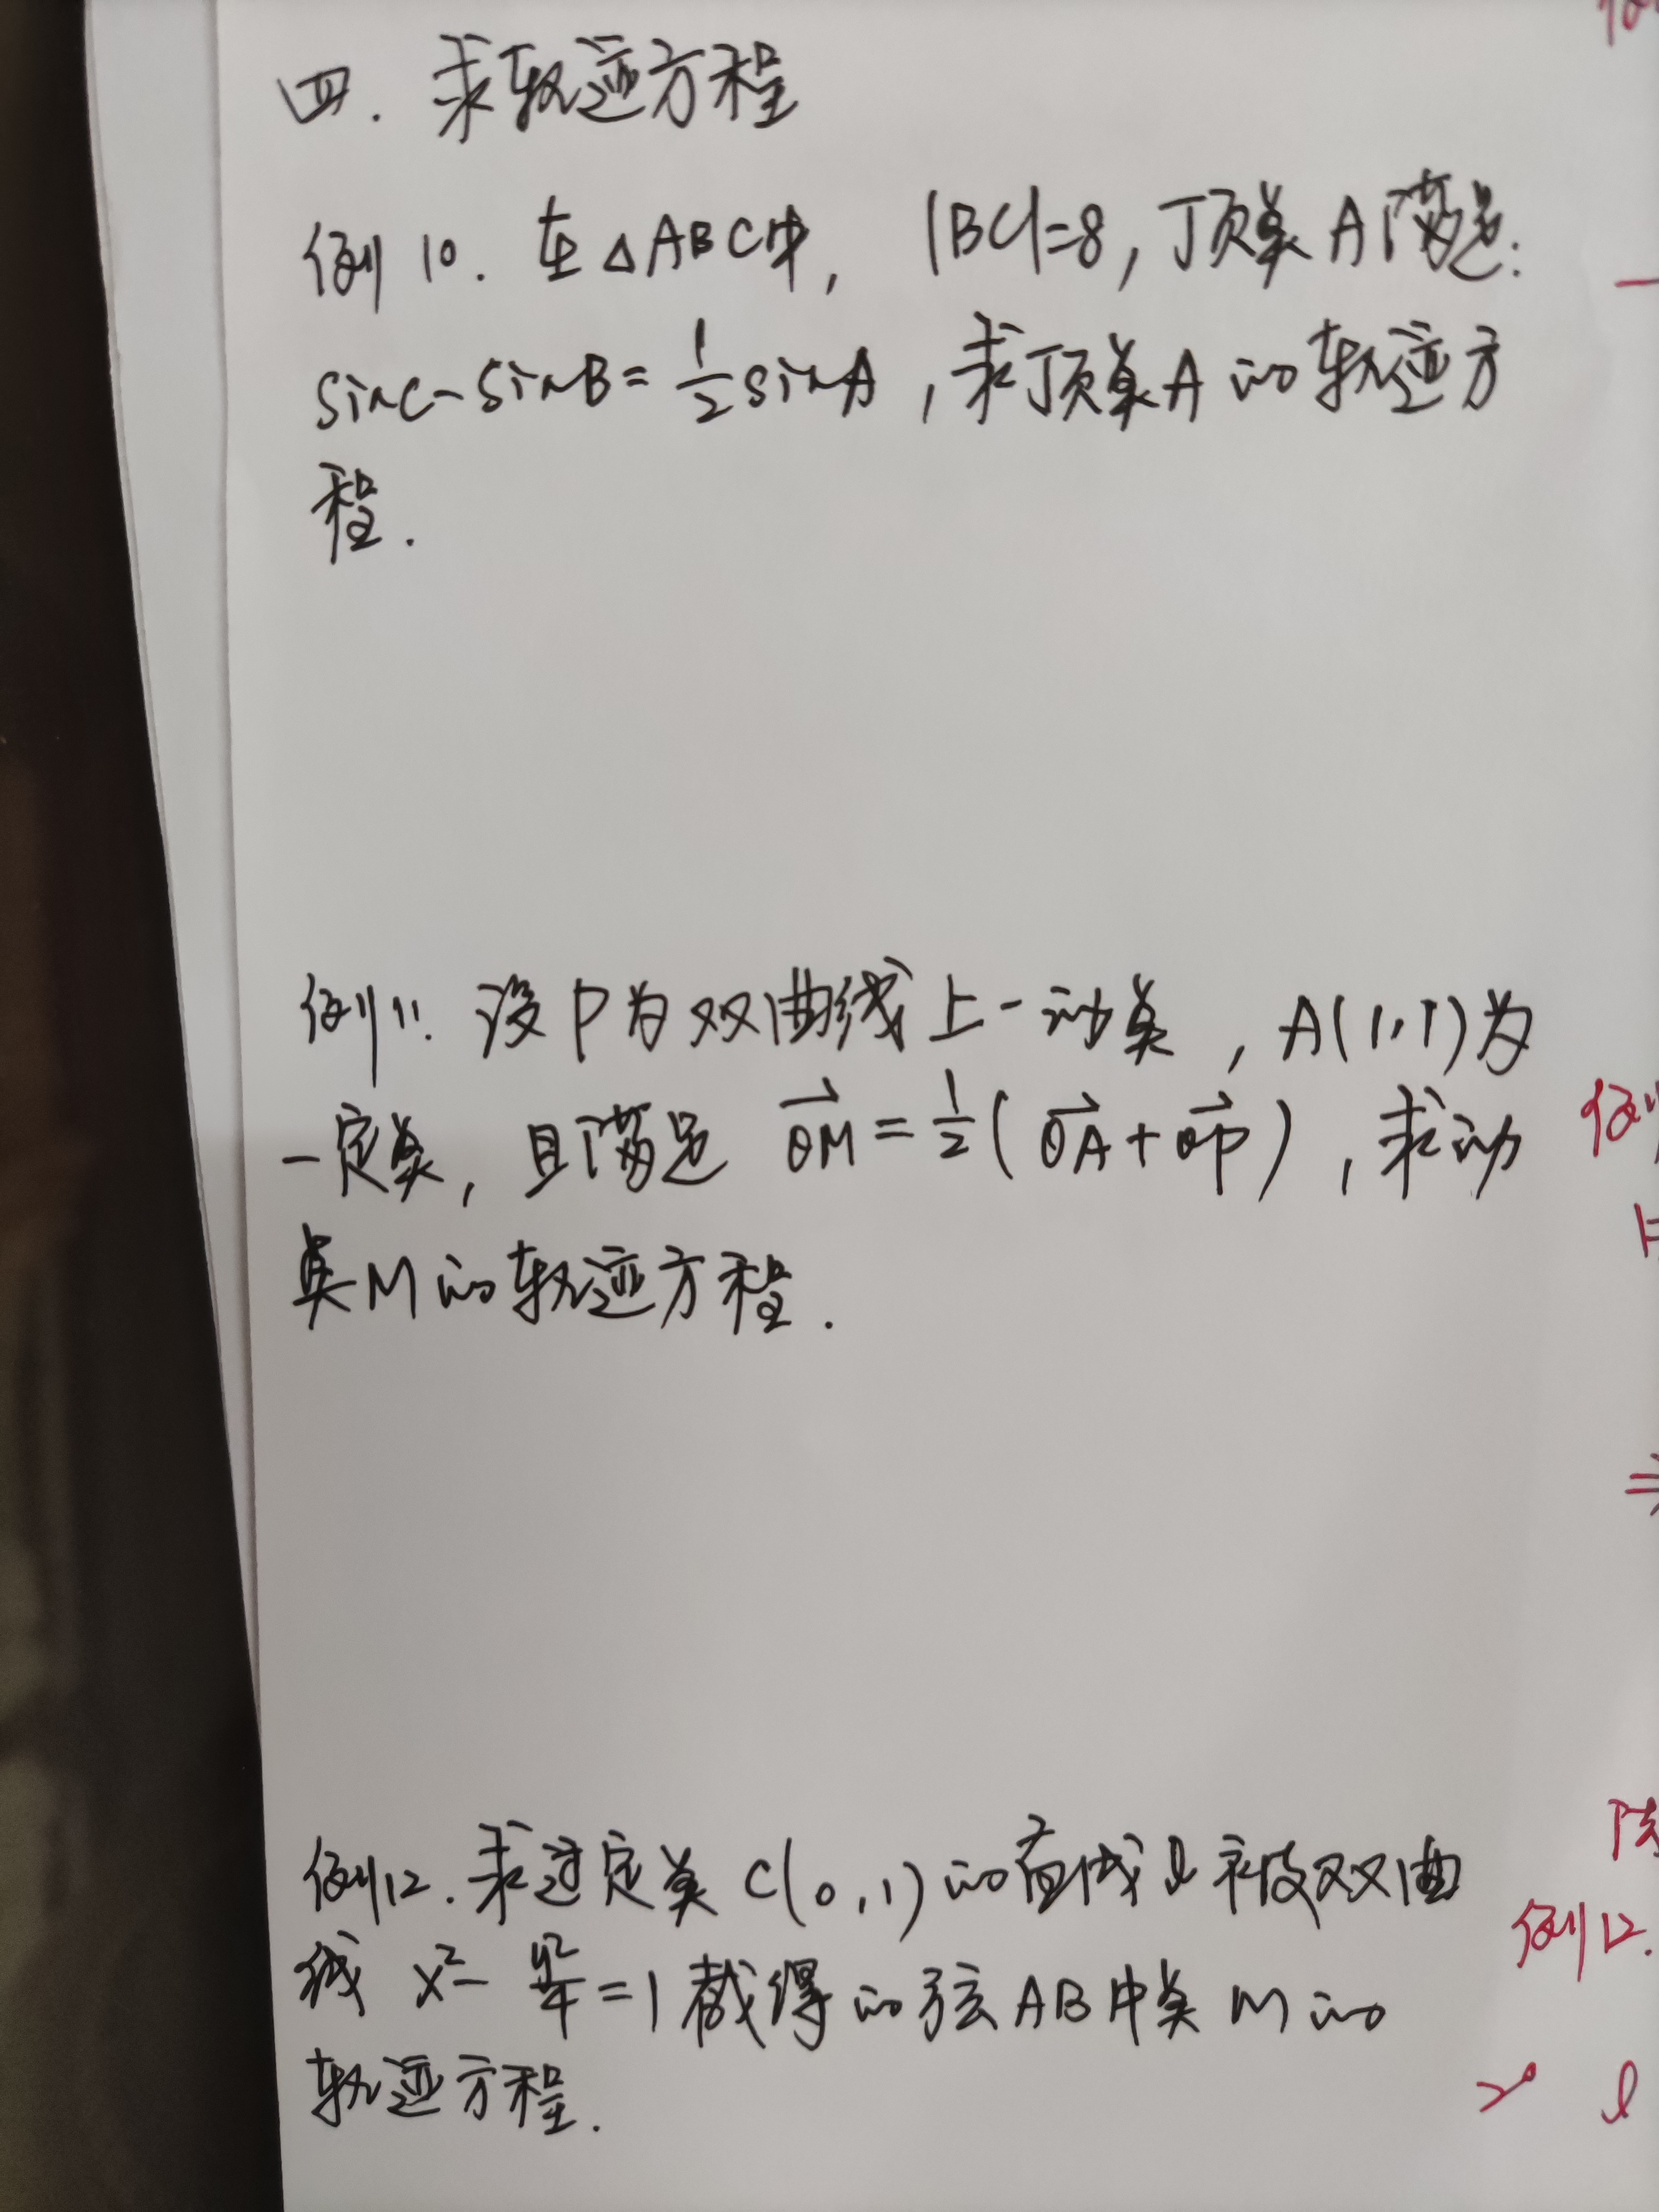 四. 求轨迹方程
例10. 在△ABC中, |BC|=8, 顶点A满足:
sinC-sinB=1/2sinA, 求顶点A的轨迹方
程.
例11. 设P为双曲线上一动点, A(1,1)为
一定点, 且满足 OM⃗=1/2(OA⃗+OP⃗), 求动
点M的轨迹方程.
例12. 求过定点C(0,1)的直线l被双曲
线 x²-y²/4=1截得的弦AB中点M的
轨迹方程.
例12.
l